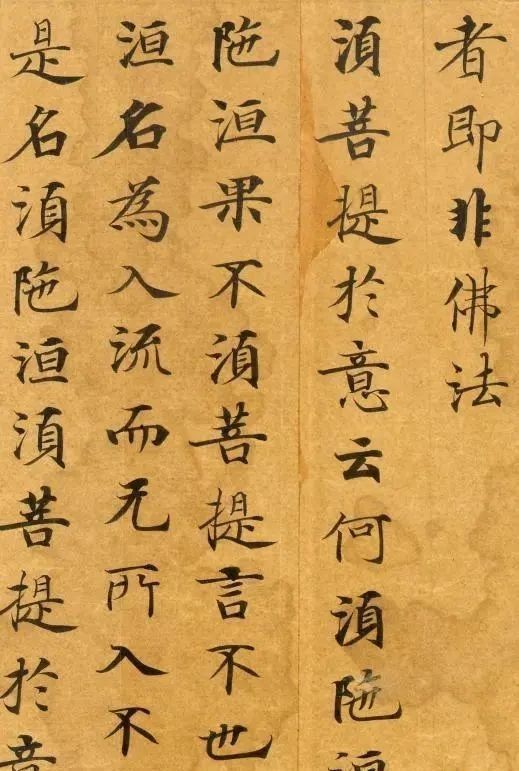 者即非佛法
湏菩提扵意云何湏陁洹
陁洹果不湏菩提言不也
洹名為入流而无所入不
是名湏陁洹湏菩提扵意